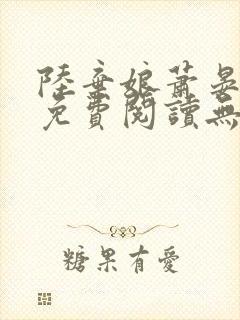 陸棄娘蕭晏
免費閱讀無
糖果有愛